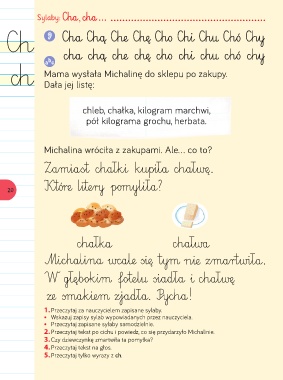 Sylaby: Cha, cha...
Ch
ch
Cha Chą Che Chę Cho Chi Chu Chó Chy
cha chą che chę cho chi chu chó chy
Mama wysłała Michalinę do sklepu po zakupy.
Dała jej listę:
chleb, chałka, kilogram marchwi,
pół kilograma grochu, herbata.
Michalina wróciła z zakupami. Ale... co to?
Zamiast chałki kupiła chałwę.
Które litery pomyliła?
chałka
chałwa
Michalina wcale się tym nie zmartwiła.
W głębokim fotelu siadła i chałwę
ze smakiem zjadła. Pycha!
20
1. Przeczytaj za nauczycielem zapisane sylaby.
• Wskazuj zapisy sylab wypowiadanych przez nauczyciela.
• Przeczytaj zapisane sylaby samodzielnie.
2. Przeczytaj tekst po cichu i powiedz, co się przydarzyło Michalinie.
3. Czy dziewczynkę zmartwiła ta pomyłka?
4. Przeczytaj tekst na głos.
5. Przeczytaj tylko wyrazy z ch.